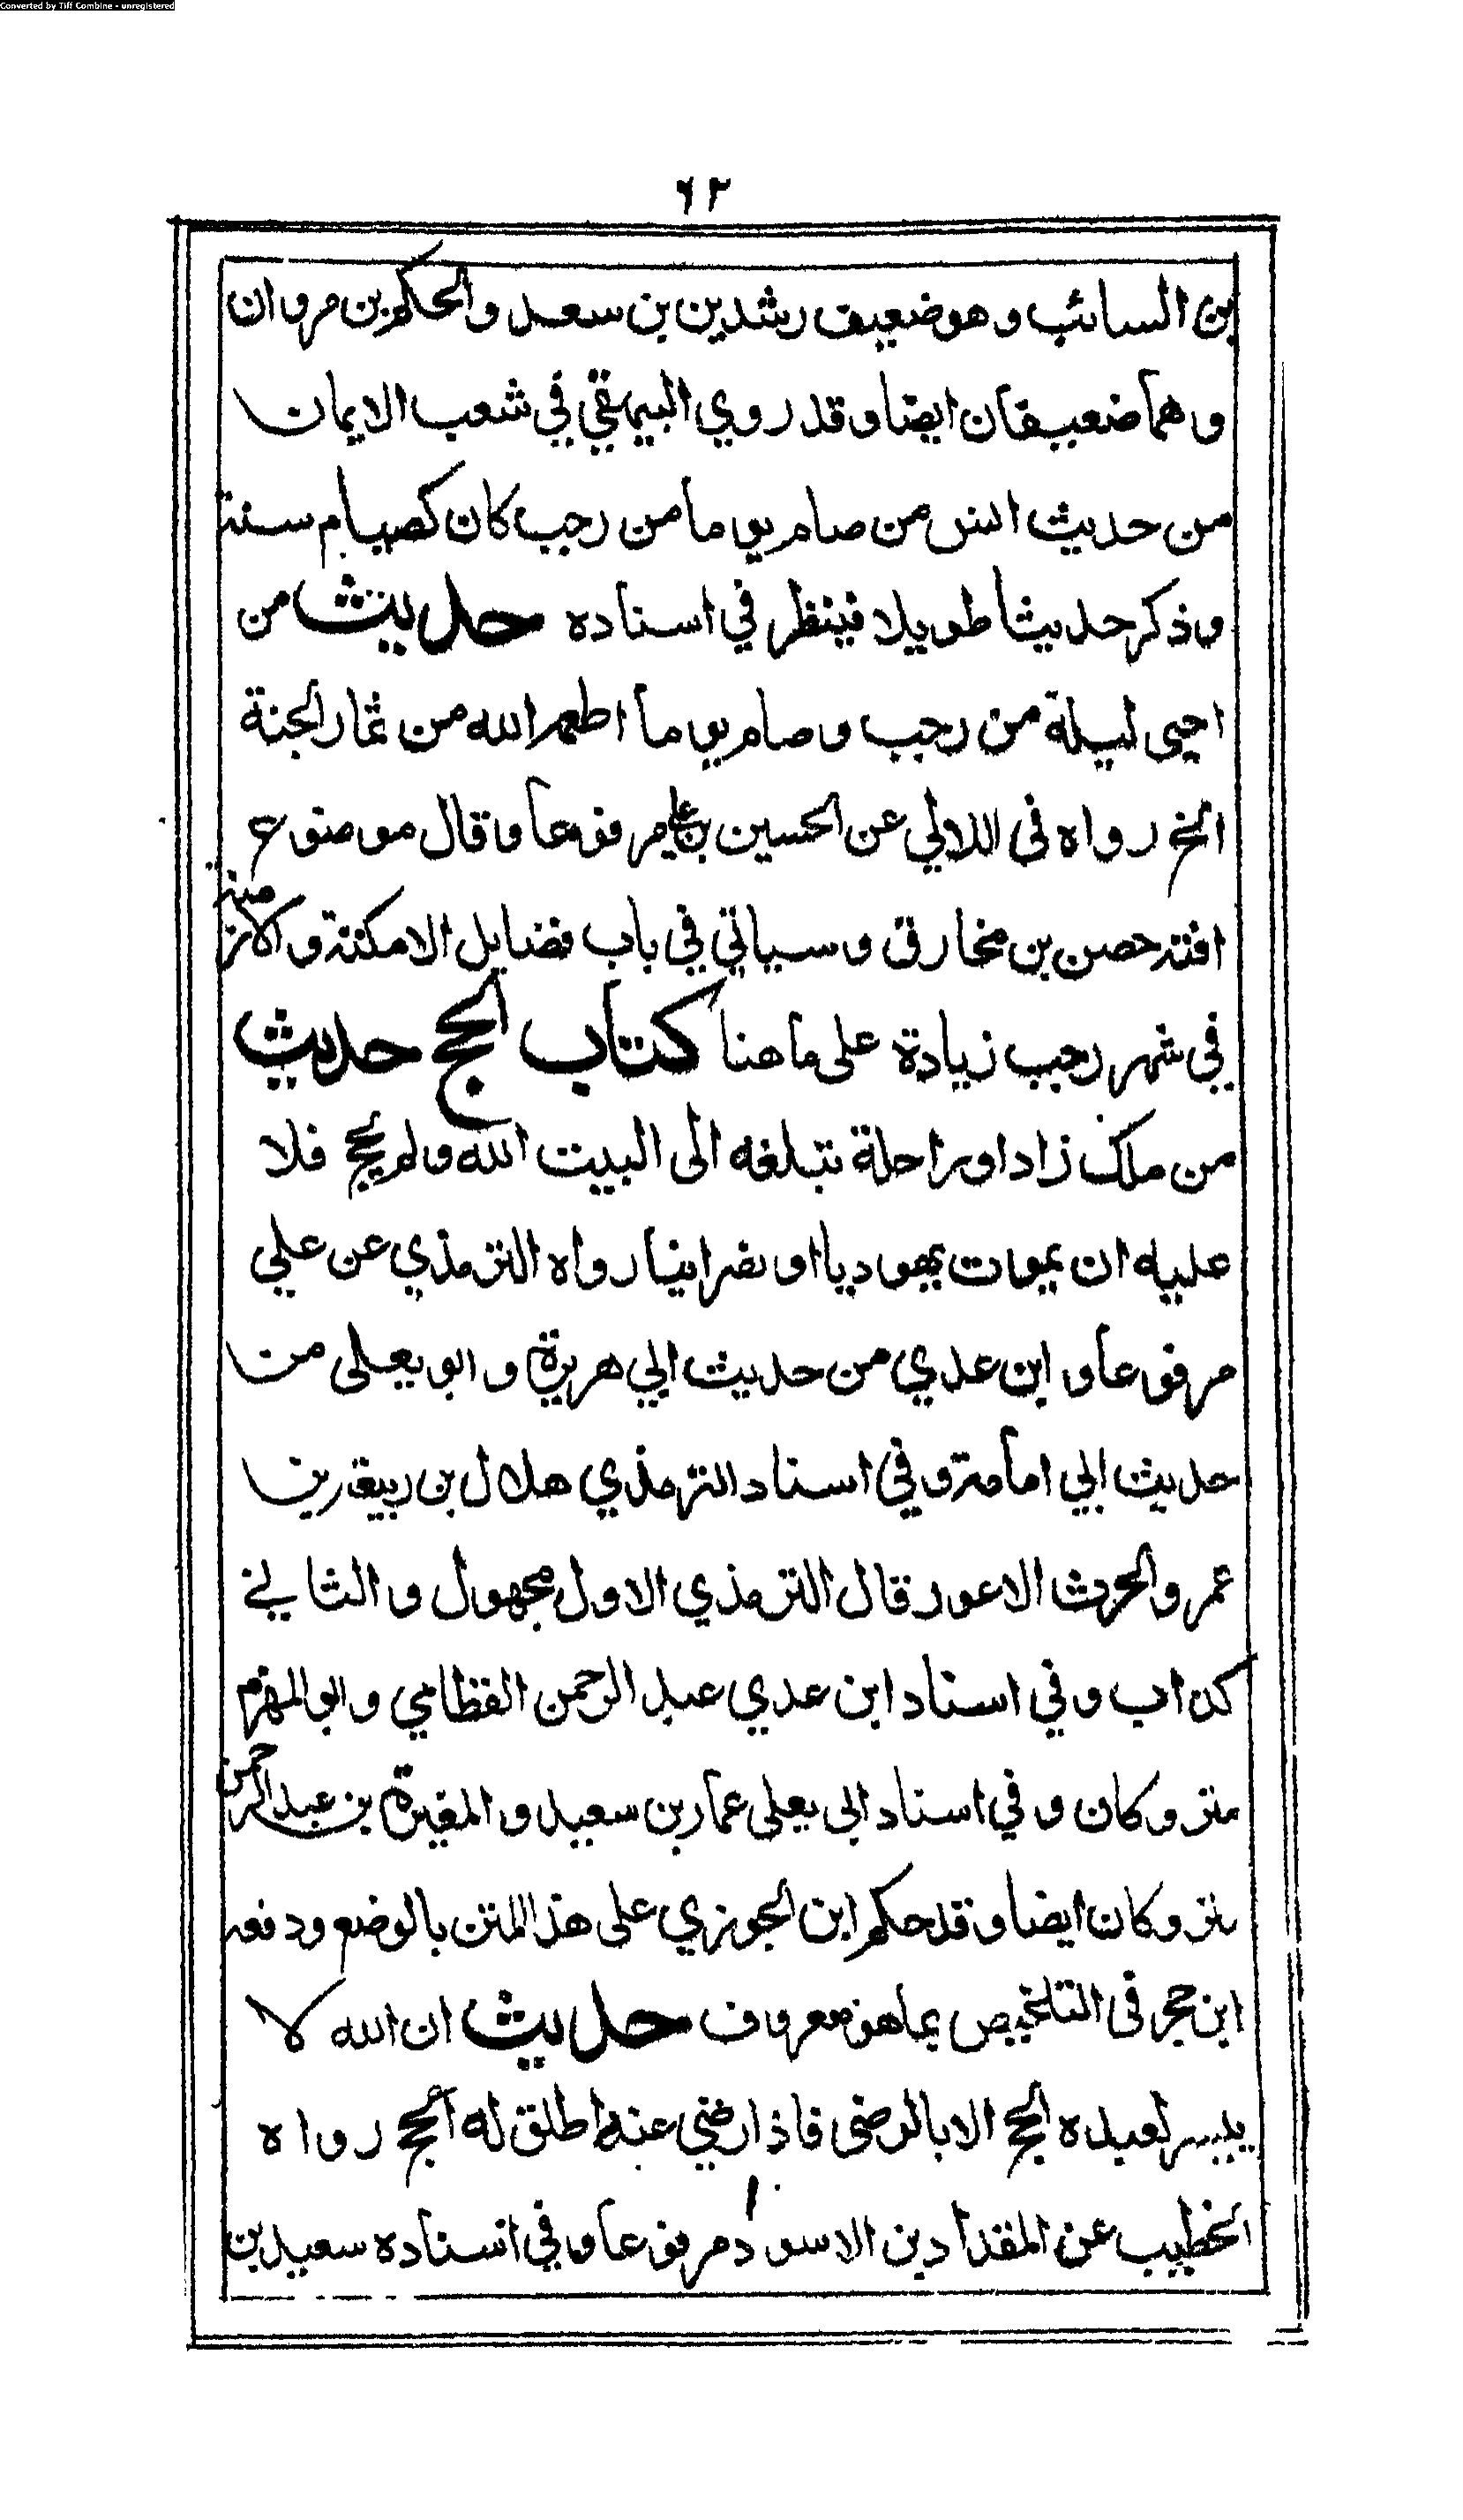 Converted by Tiff Combine - unregistered
٦٢
بن السائب وهو ضعيف رشدين بن سعد والحكم بن مروان
وهما ضعيفان ايضا وقد روي البيهقي في شعب الايمان
من حديث انس من صام يوما من رجب كان كصيام سنة
وذكر حديثا طويلا فينظر في اسناده حديث من
احيى ليلة من رجب وصام يوما اطعمه الله من ثمار الجنة
الخ رواه فى اللالي عن الحسين بن علي مرفوعا وقال موضوع
افته حصن بن مخارق وسياتي في باب فضايل الامكنة والازمنة
في شهر رجب زيادة على ما هنا كتاب الحج حديث
من ملك زادا وراحلة تبلغه الى البيت الله ولم يحج فلا
عليه ان يموت يهوديا او نصرانيا رواه الترمذي عن علي
مرفوعا و ابن عدي من حديث ابي هريرة و ابو يعلى من
حديث ابي امامة وفي اسناد الترمذي هلال بن ربيعة بن
عمر والحرث الاعور قال الترمذي الاول مجهول و الثاني
كذاب و في اسناد ابن عدي عبد الرحمن القظامي و ابو المهزم
متروكان و في اسناد ابى يعلى عمار بن سعيد و المغيرة بن عبد الرحمن
متروكان ايضا و قد حكم ابن الجوزي على هذا المتن بالوضع ودفعه
ابن حجر فى التلخيص بما هو معروف حديث ان الله لا
ييسر لعبده الحج الا بالرضى فاذا رضي عنه اطلق له الحج رواه
الخطيب عن المقداد بن الاسود مرفوعا و في اسناده سعيد بن